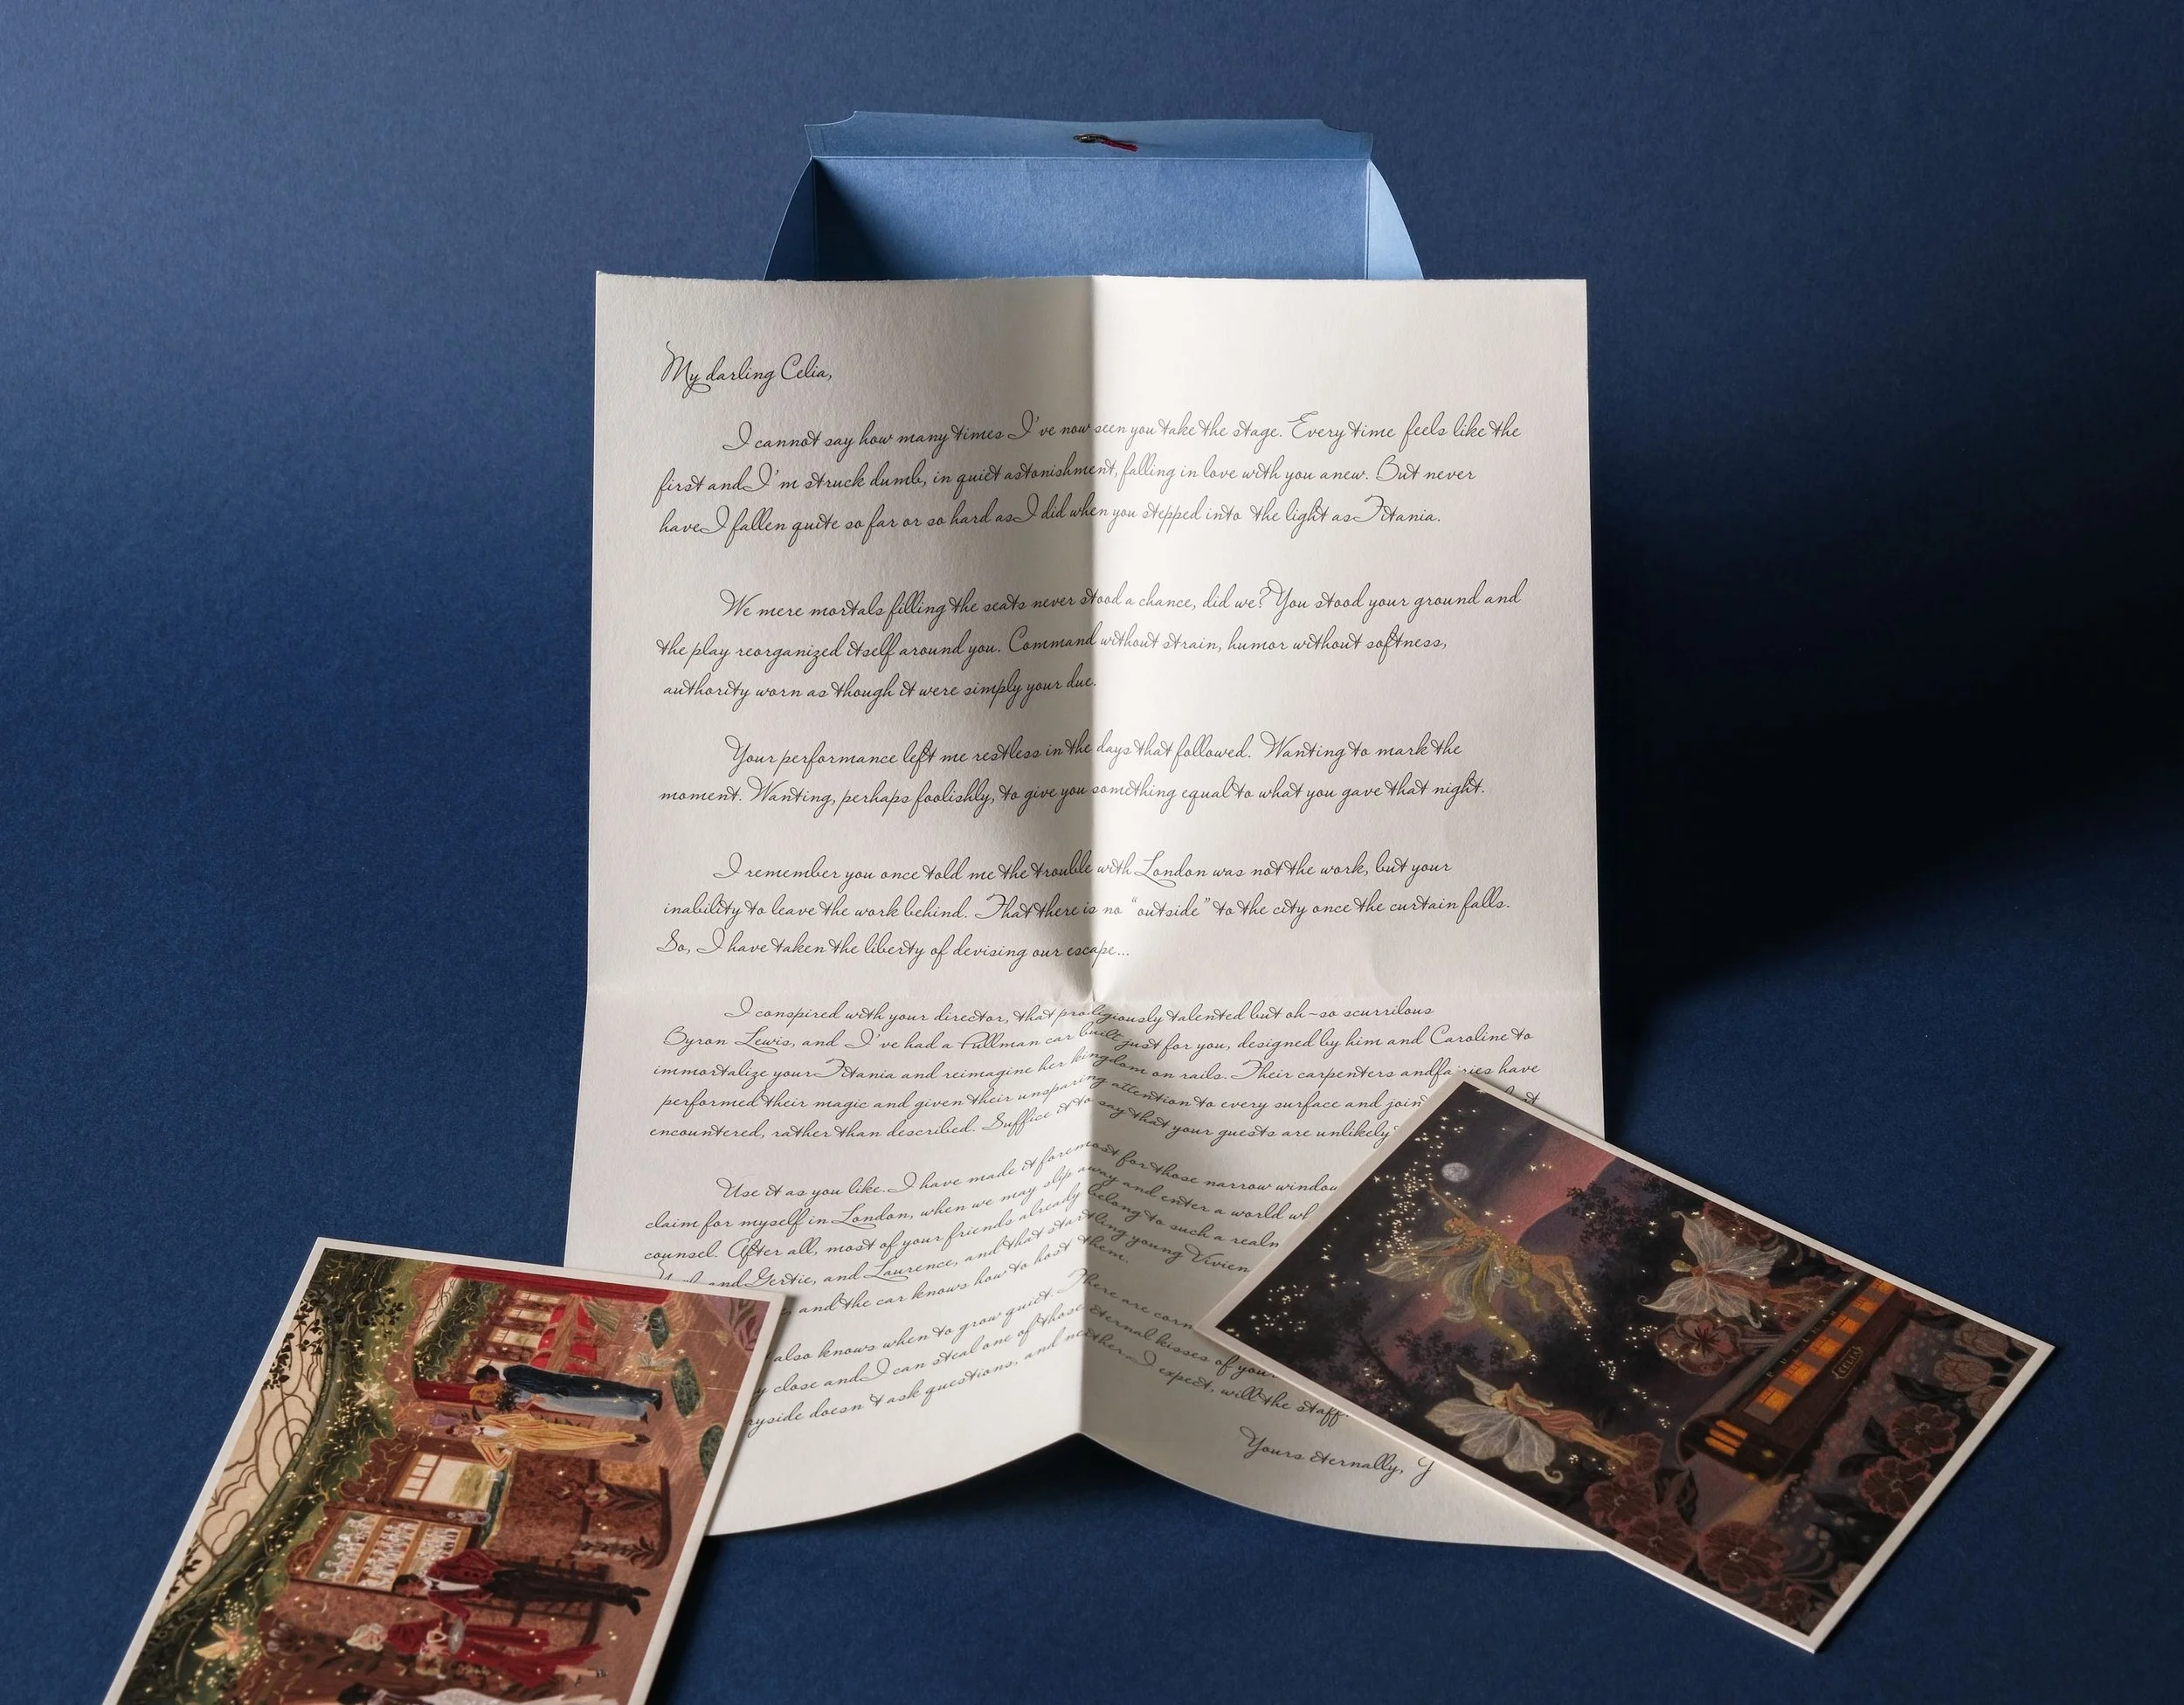 My darling Celia,
I cannot say how many times I've now seen you take the stage. Every time feels like the
first and I'm struck dumb, in quiet astonishment, falling in love with you anew. But never
have I fallen quite so far or so hard as I did when you stepped into the light as Titania.
We mere mortals filling the seats never stood a chance, did we? You stood your ground and
the play reorganized itself around you. Command without strain, humor without softness,
authority worn as though it were simply your due.
Your performance left me restless in the days that followed. Wanting to mark the
moment. Wanting, perhaps foolishly, to give you something equal to what you gave that night.
I remember you once told me the trouble with London was not the work, but your
inability to leave the work behind. That there is no “outside” to the city once the curtain falls.
So, I have taken the liberty of devising our escape...
I conspired with your director, that prodigiously talented but oh-so scurrilous
Byron Lewis, and I've had a Pullman car built just for you, designed by him and Caroline to
immortalize your Titania and reimagine her kingdom on rails. Their carpenters and fairies have
performed their magic and given their unsparing attention to every surface and
encountered, rather than described. Suffice it to say that your guests are unlikely
Use it as you like. I have made it foremost for those narrow
claim for myself in London, when we may slip away and enter a world
counsel. After all, most of your friends already belong to such a realm
and Gertie, and Laurence, and that startling young Vivien
and the car knows how to host them.
also knows when to grow quiet. There are
close and I can steal one of those eternal kisses of
doesn't ask questions, and neither, I expect, will the staff.
Yours eternally,
PULLMAN
CELIA